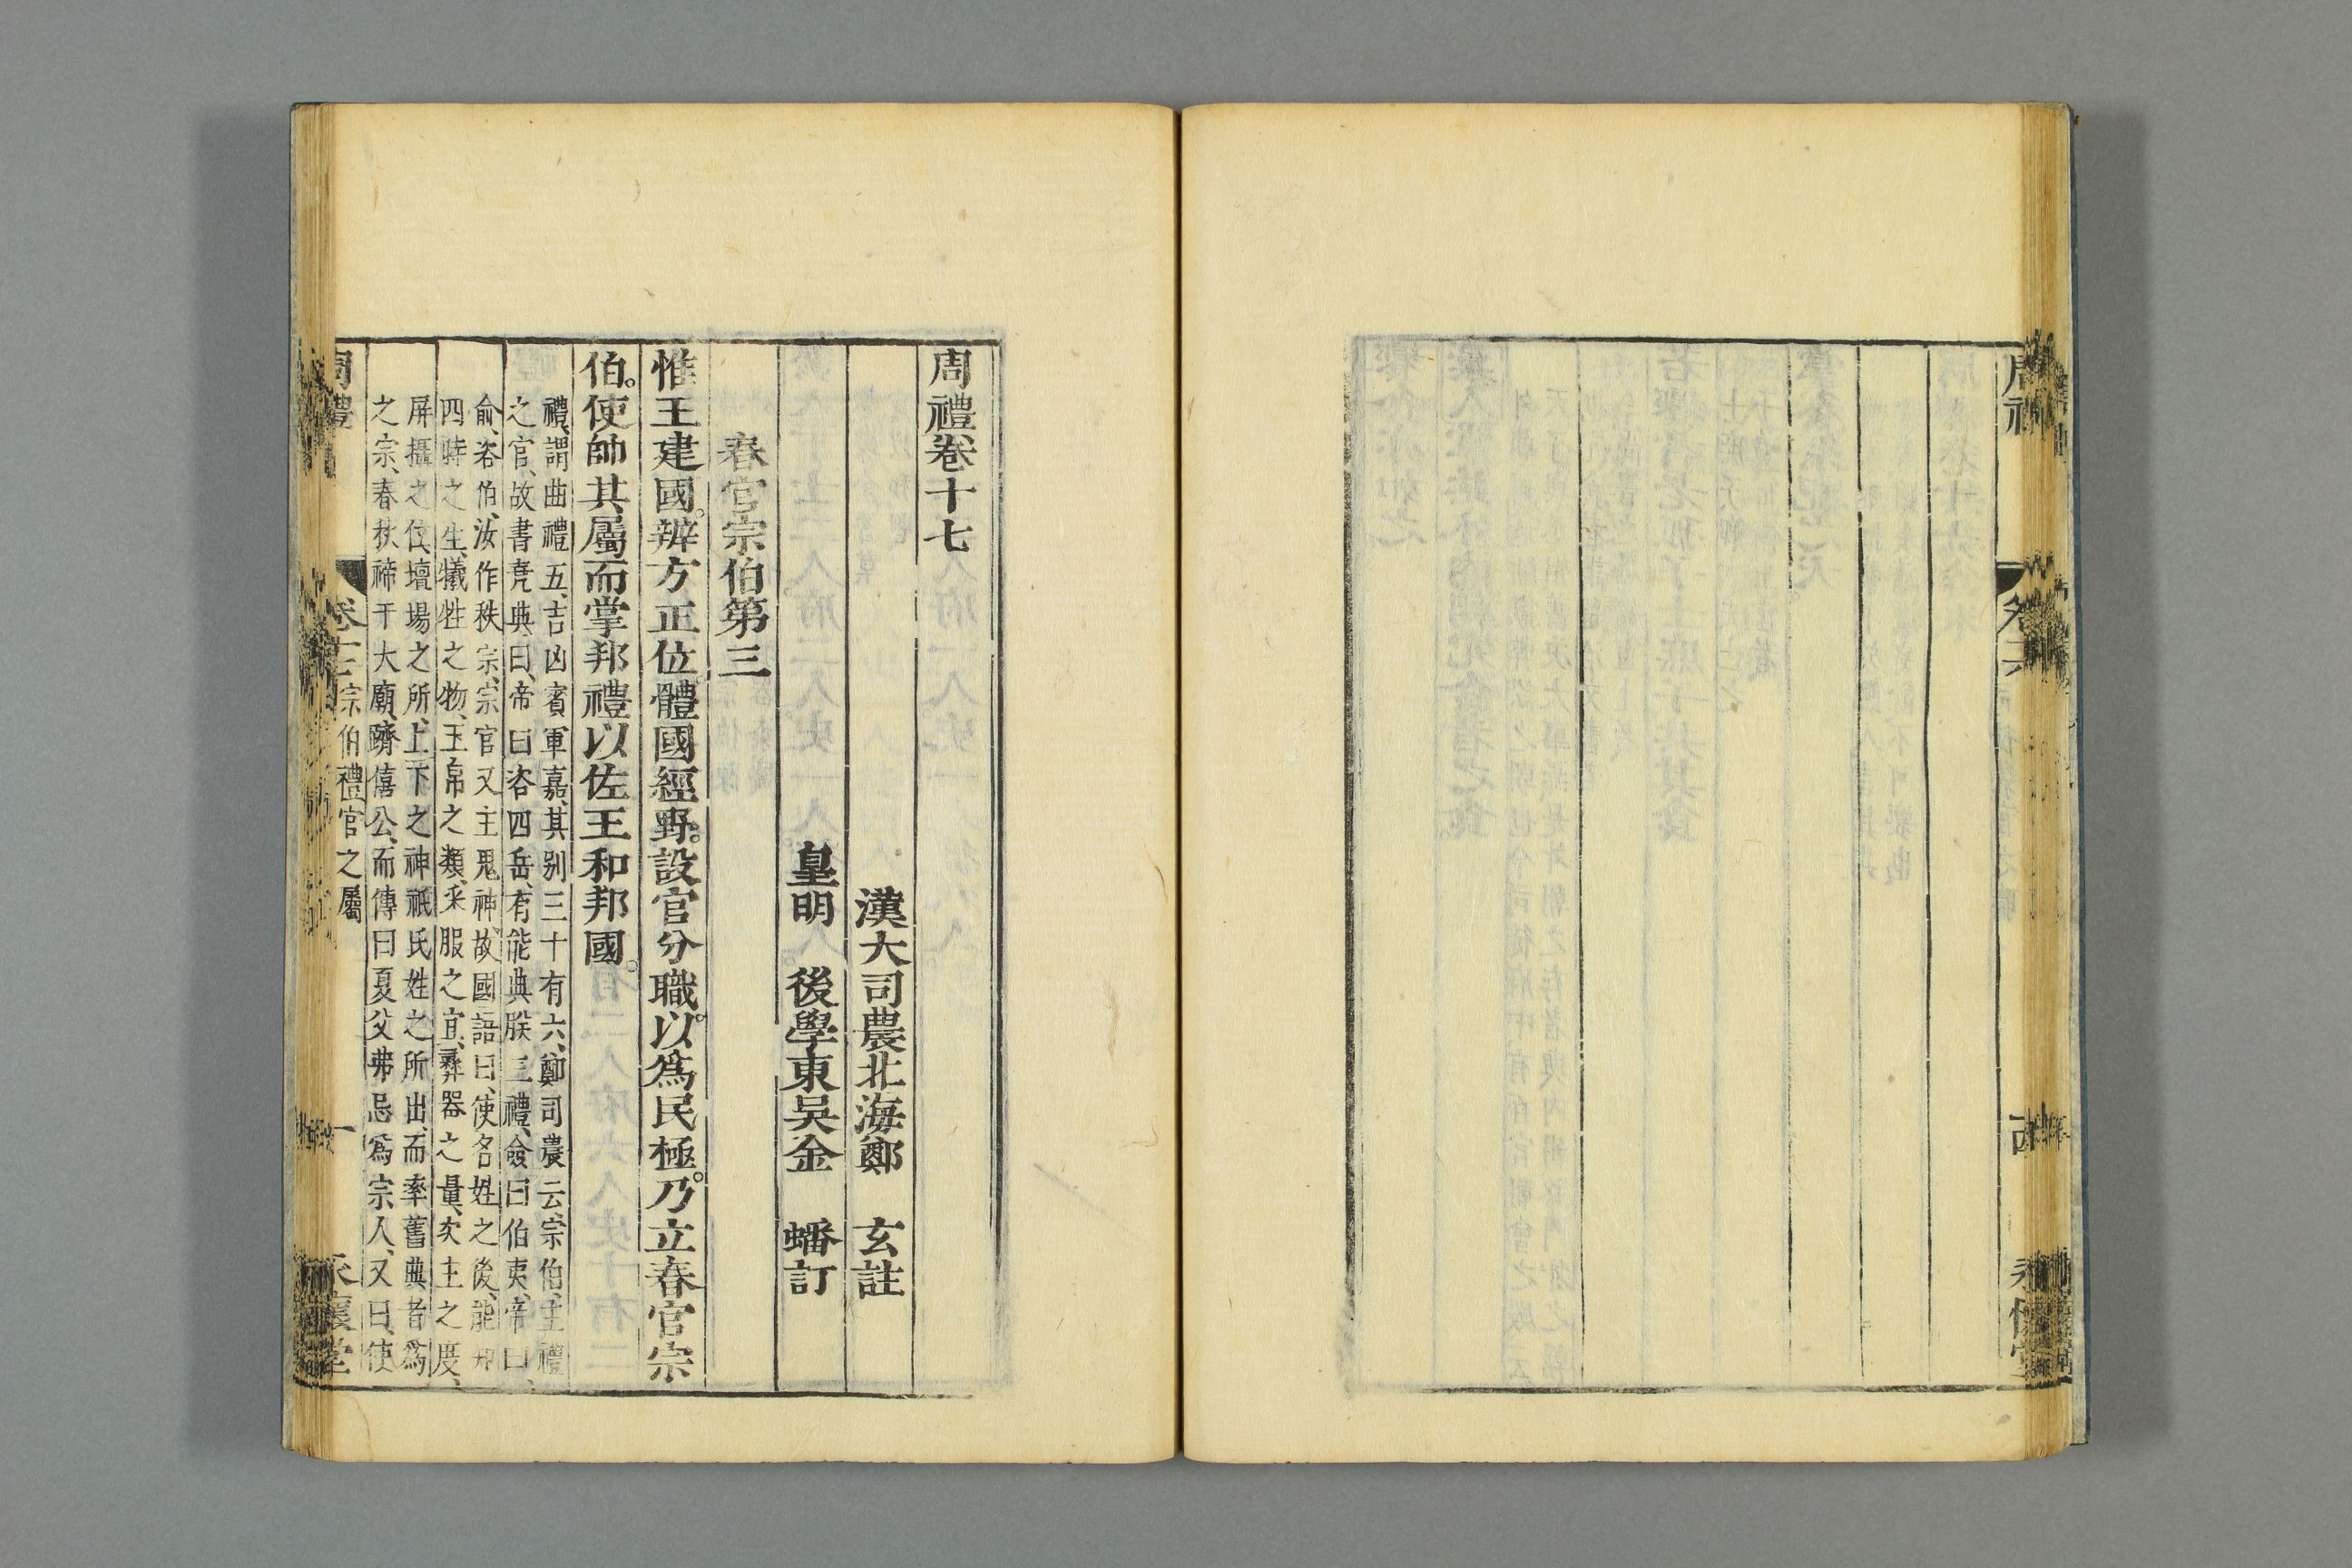 周禮卷十七
漢大司農北海鄭　玄註
皇明　後學東吳金　蟠訂
春官宗伯第三
惟王建國。辨方正位。體國經野。設官分職。以爲民極。乃立春官宗
伯。使帥其屬而掌邦禮以佐王和邦國。
禮、謂曲禮五、吉凶賓軍嘉、其別三十有六、鄭司農云、宗伯、主禮
之官、故書堯典曰、帝曰咨四岳、有能典朕三禮、僉曰伯夷、帝曰、
俞、咨伯、汝作秩宗、宗官又主鬼神、故國語曰、使名姓之後、能知
四時之生、犧牲之物、玉帛之類、采服之宜、彝器之量、次主之度、
屏攝之位、壇場之所、上下之神祇氏姓之所出、而率舊典者爲
之宗、春秋禘于大廟、躋僖公、而傳曰夏父弗忌爲宗人、又曰、使
宗伯禮官之屬
周禮　卷十七　一　永懷堂